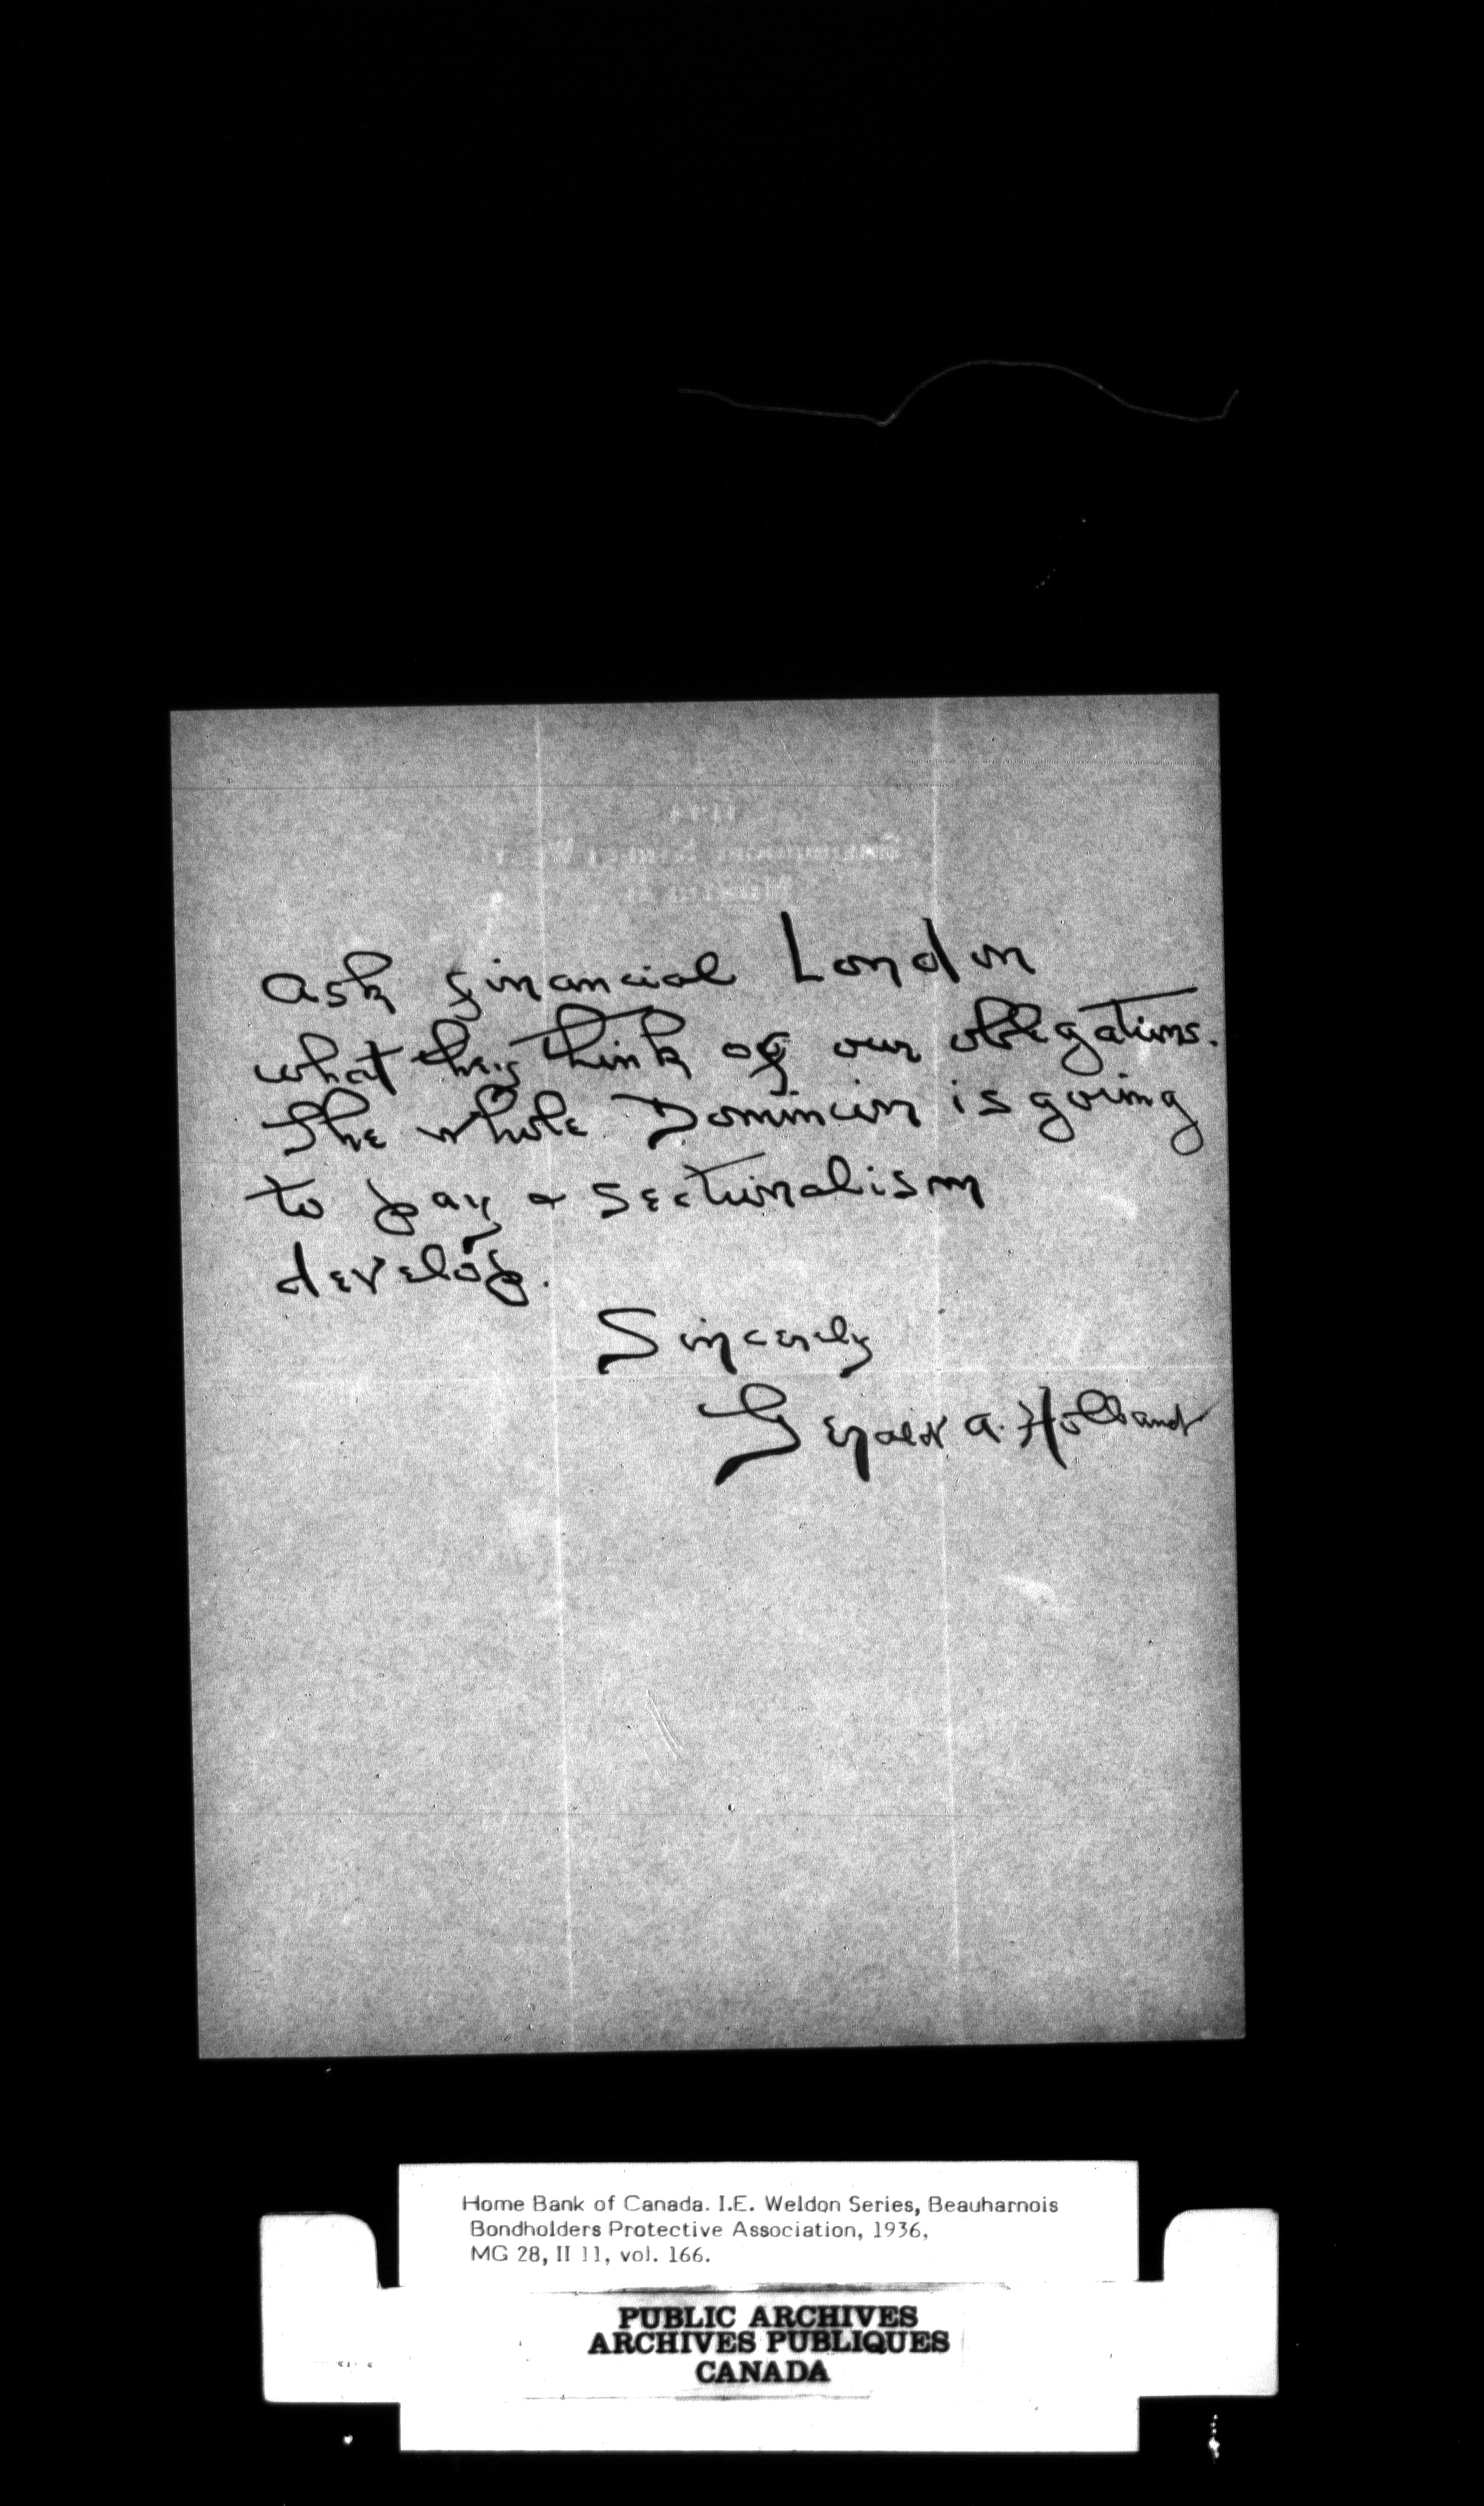 ask financial London
what they think of our obligations.
The whole Dominion is going
to pay & sectionalism
develop.
Sincerely
Gerald A. Holland
Home Bank of Canada. I.E. Weldon Series, Beauharnois
Bondholders Protective Association, 1936,
MG 28, II 11, vol. 166.
PUBLIC ARCHIVES
ARCHIVES PUBLIQUES
CANADA